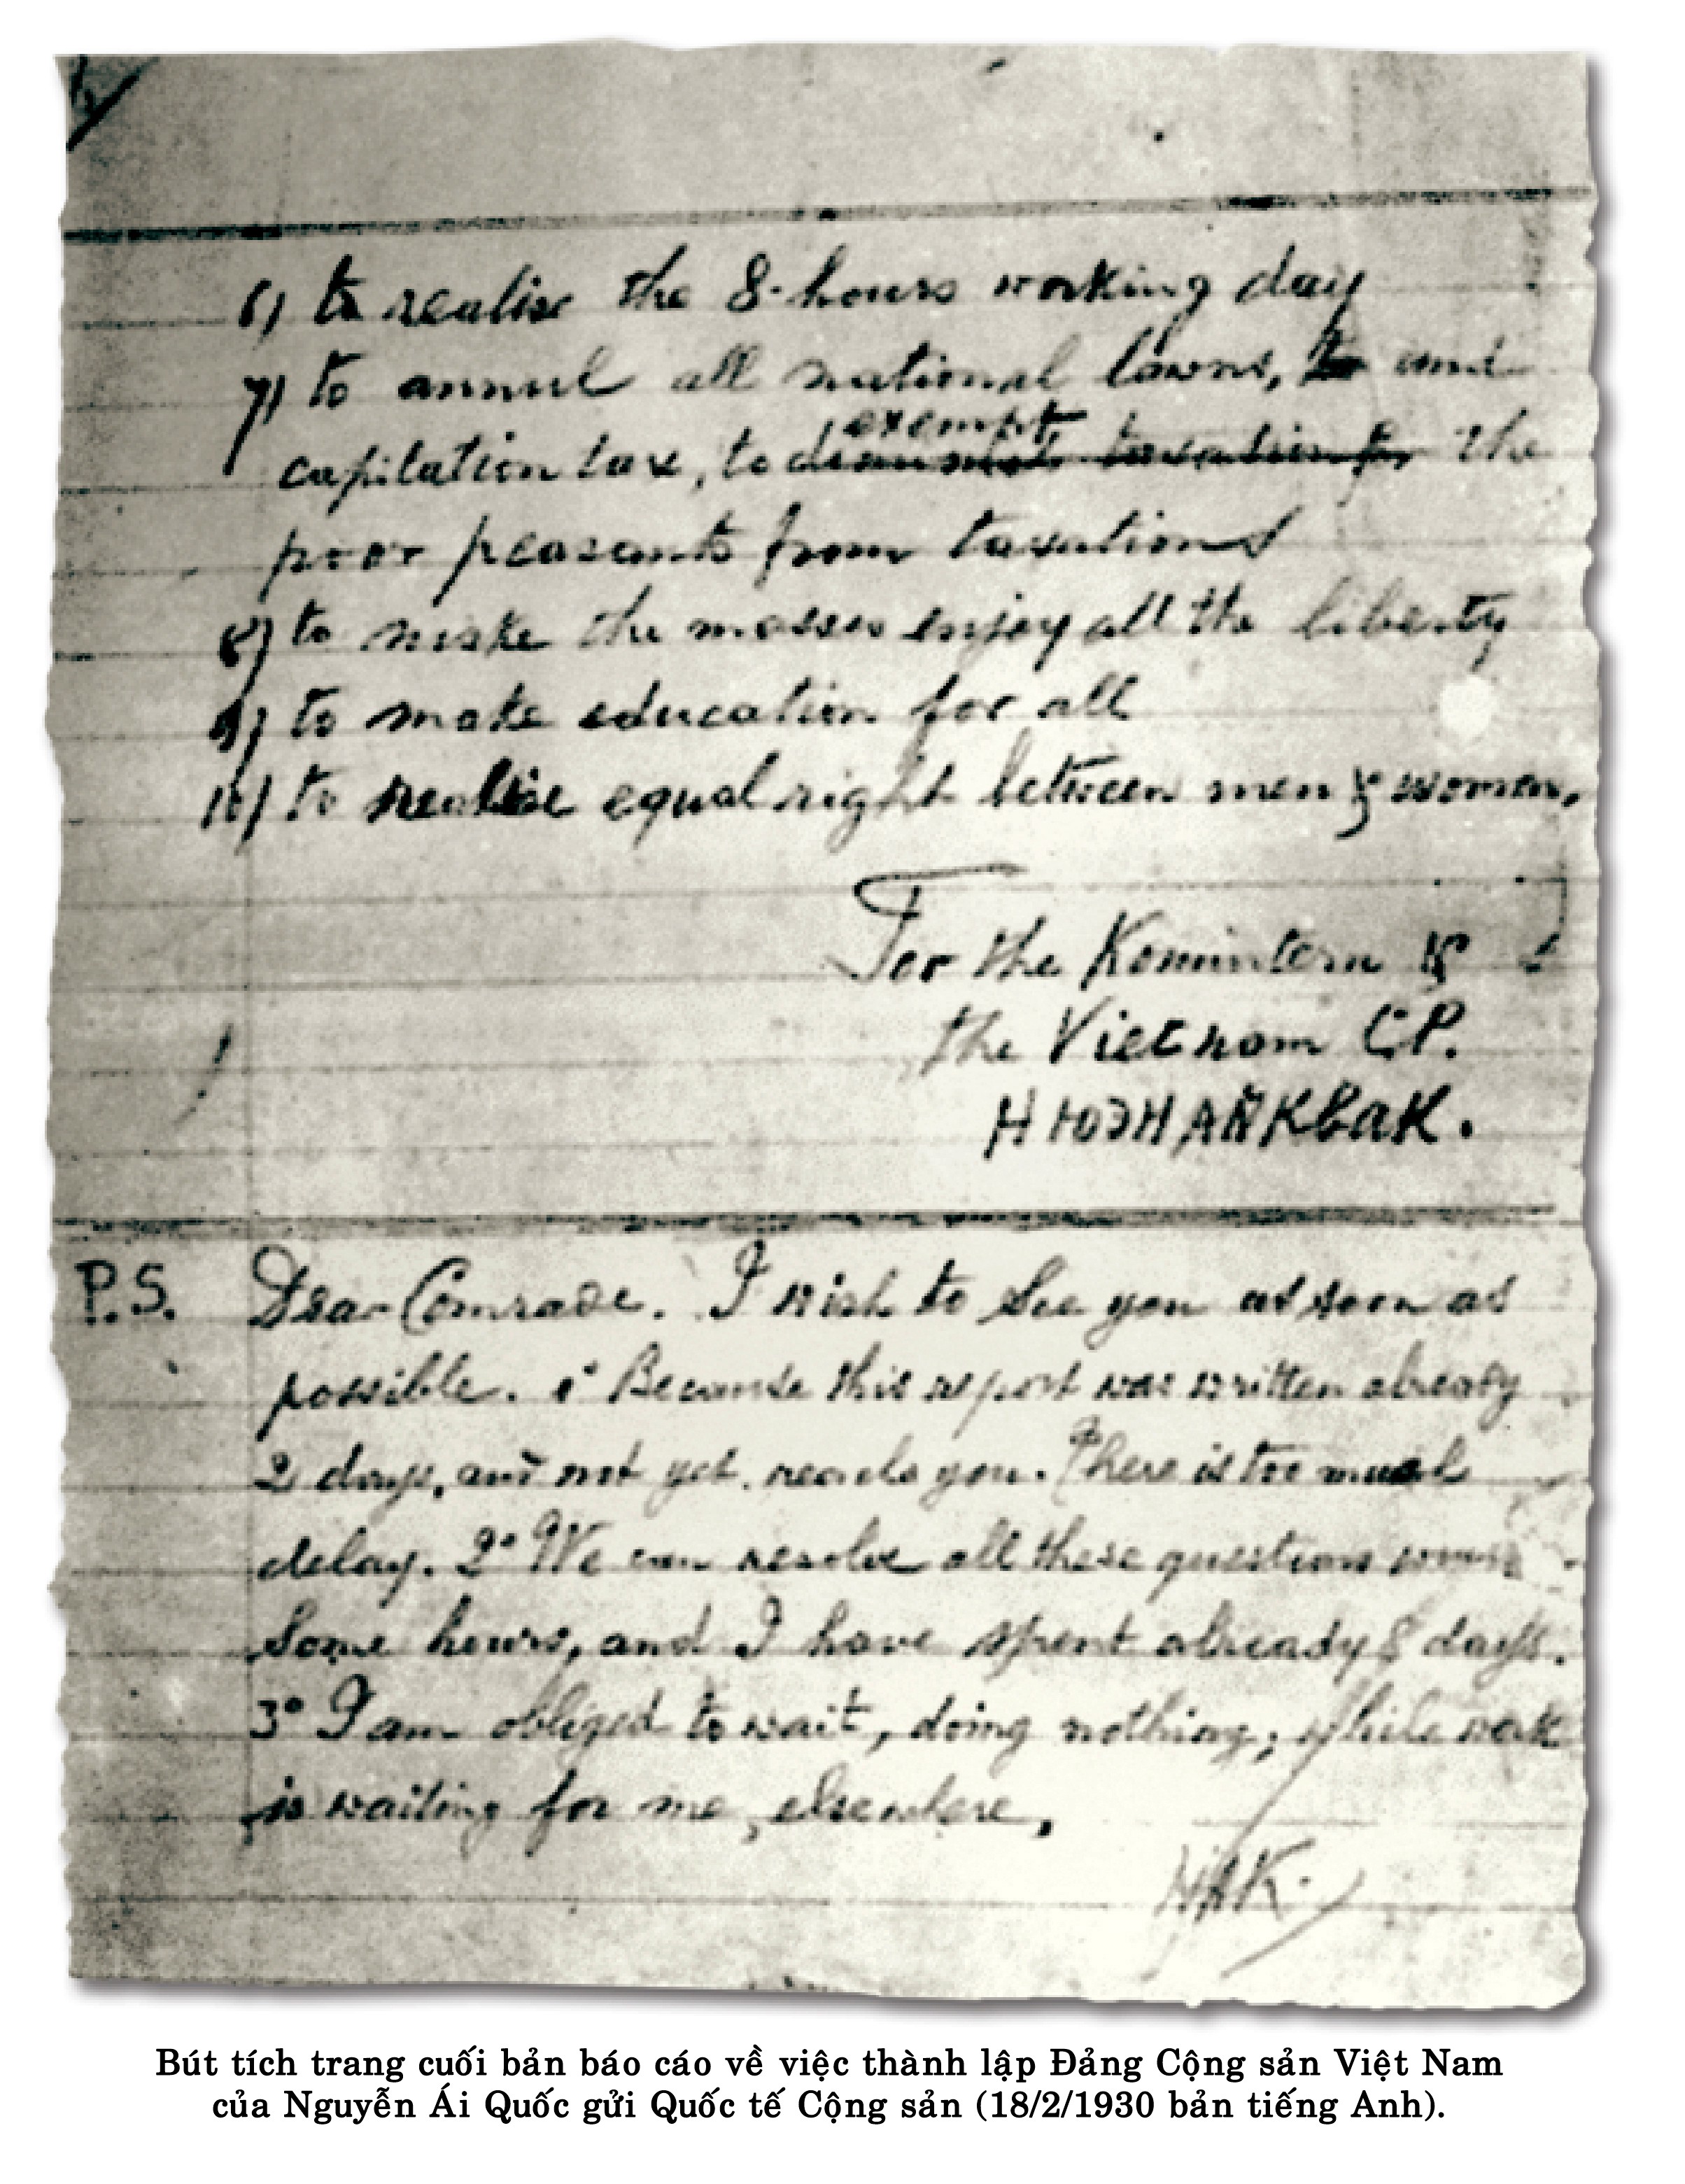 6) to realise the 8-hours working day
7) to annul all national lawns, to and
exempt
capitation tax, to taxation for the
poor peasants from taxations
8) to make the masses enjoy all the liberty
9) to make education for all
10) to realise equal right between men & women.
For the Komintern &
the Vietnam C.P.
P.S. Dear Comrade. I wish to see you as soon as
possible. 1° Because this report was written already
2 days, and not yet reachs you. There is too much
delay. 2° We can resolve all these questions
some hours, and I have spent already 8 days.
3° I am obliged to wait, doing nothing; while work
is waiting for me, elsewhere.
NAK.
Bút tích trang cuối bản báo cáo về việc thành lập Đảng Cộng sản Việt Nam
của Nguyễn Ái Quốc gửi Quốc tế Cộng sản (18/2/1930 bản tiếng Anh).